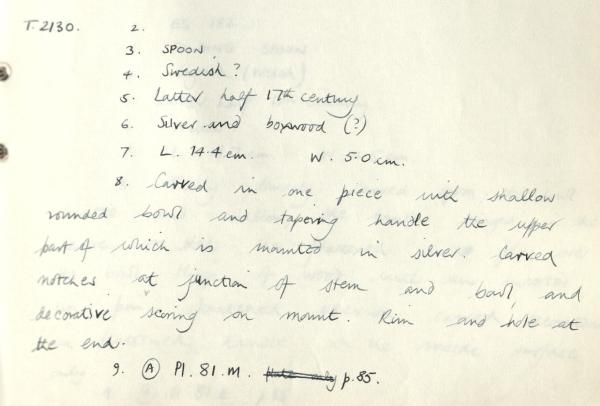 T.2130. 2.
3. SPOON.
4. Swedish?
5. Latter half 17th century
6. Silver and boxwood (?)
7. L. 14.4 cm. W. 5.0 cm.
8. Carved in one piece with shallow
rounded bowl and tapering handle the upper
part of which is mounted in silver. Carved
notches at junction of stem and bowl, and
decorative scoring on mount. Rim and hole at
the end.
9. (A) Pl. 81. M. p.85.